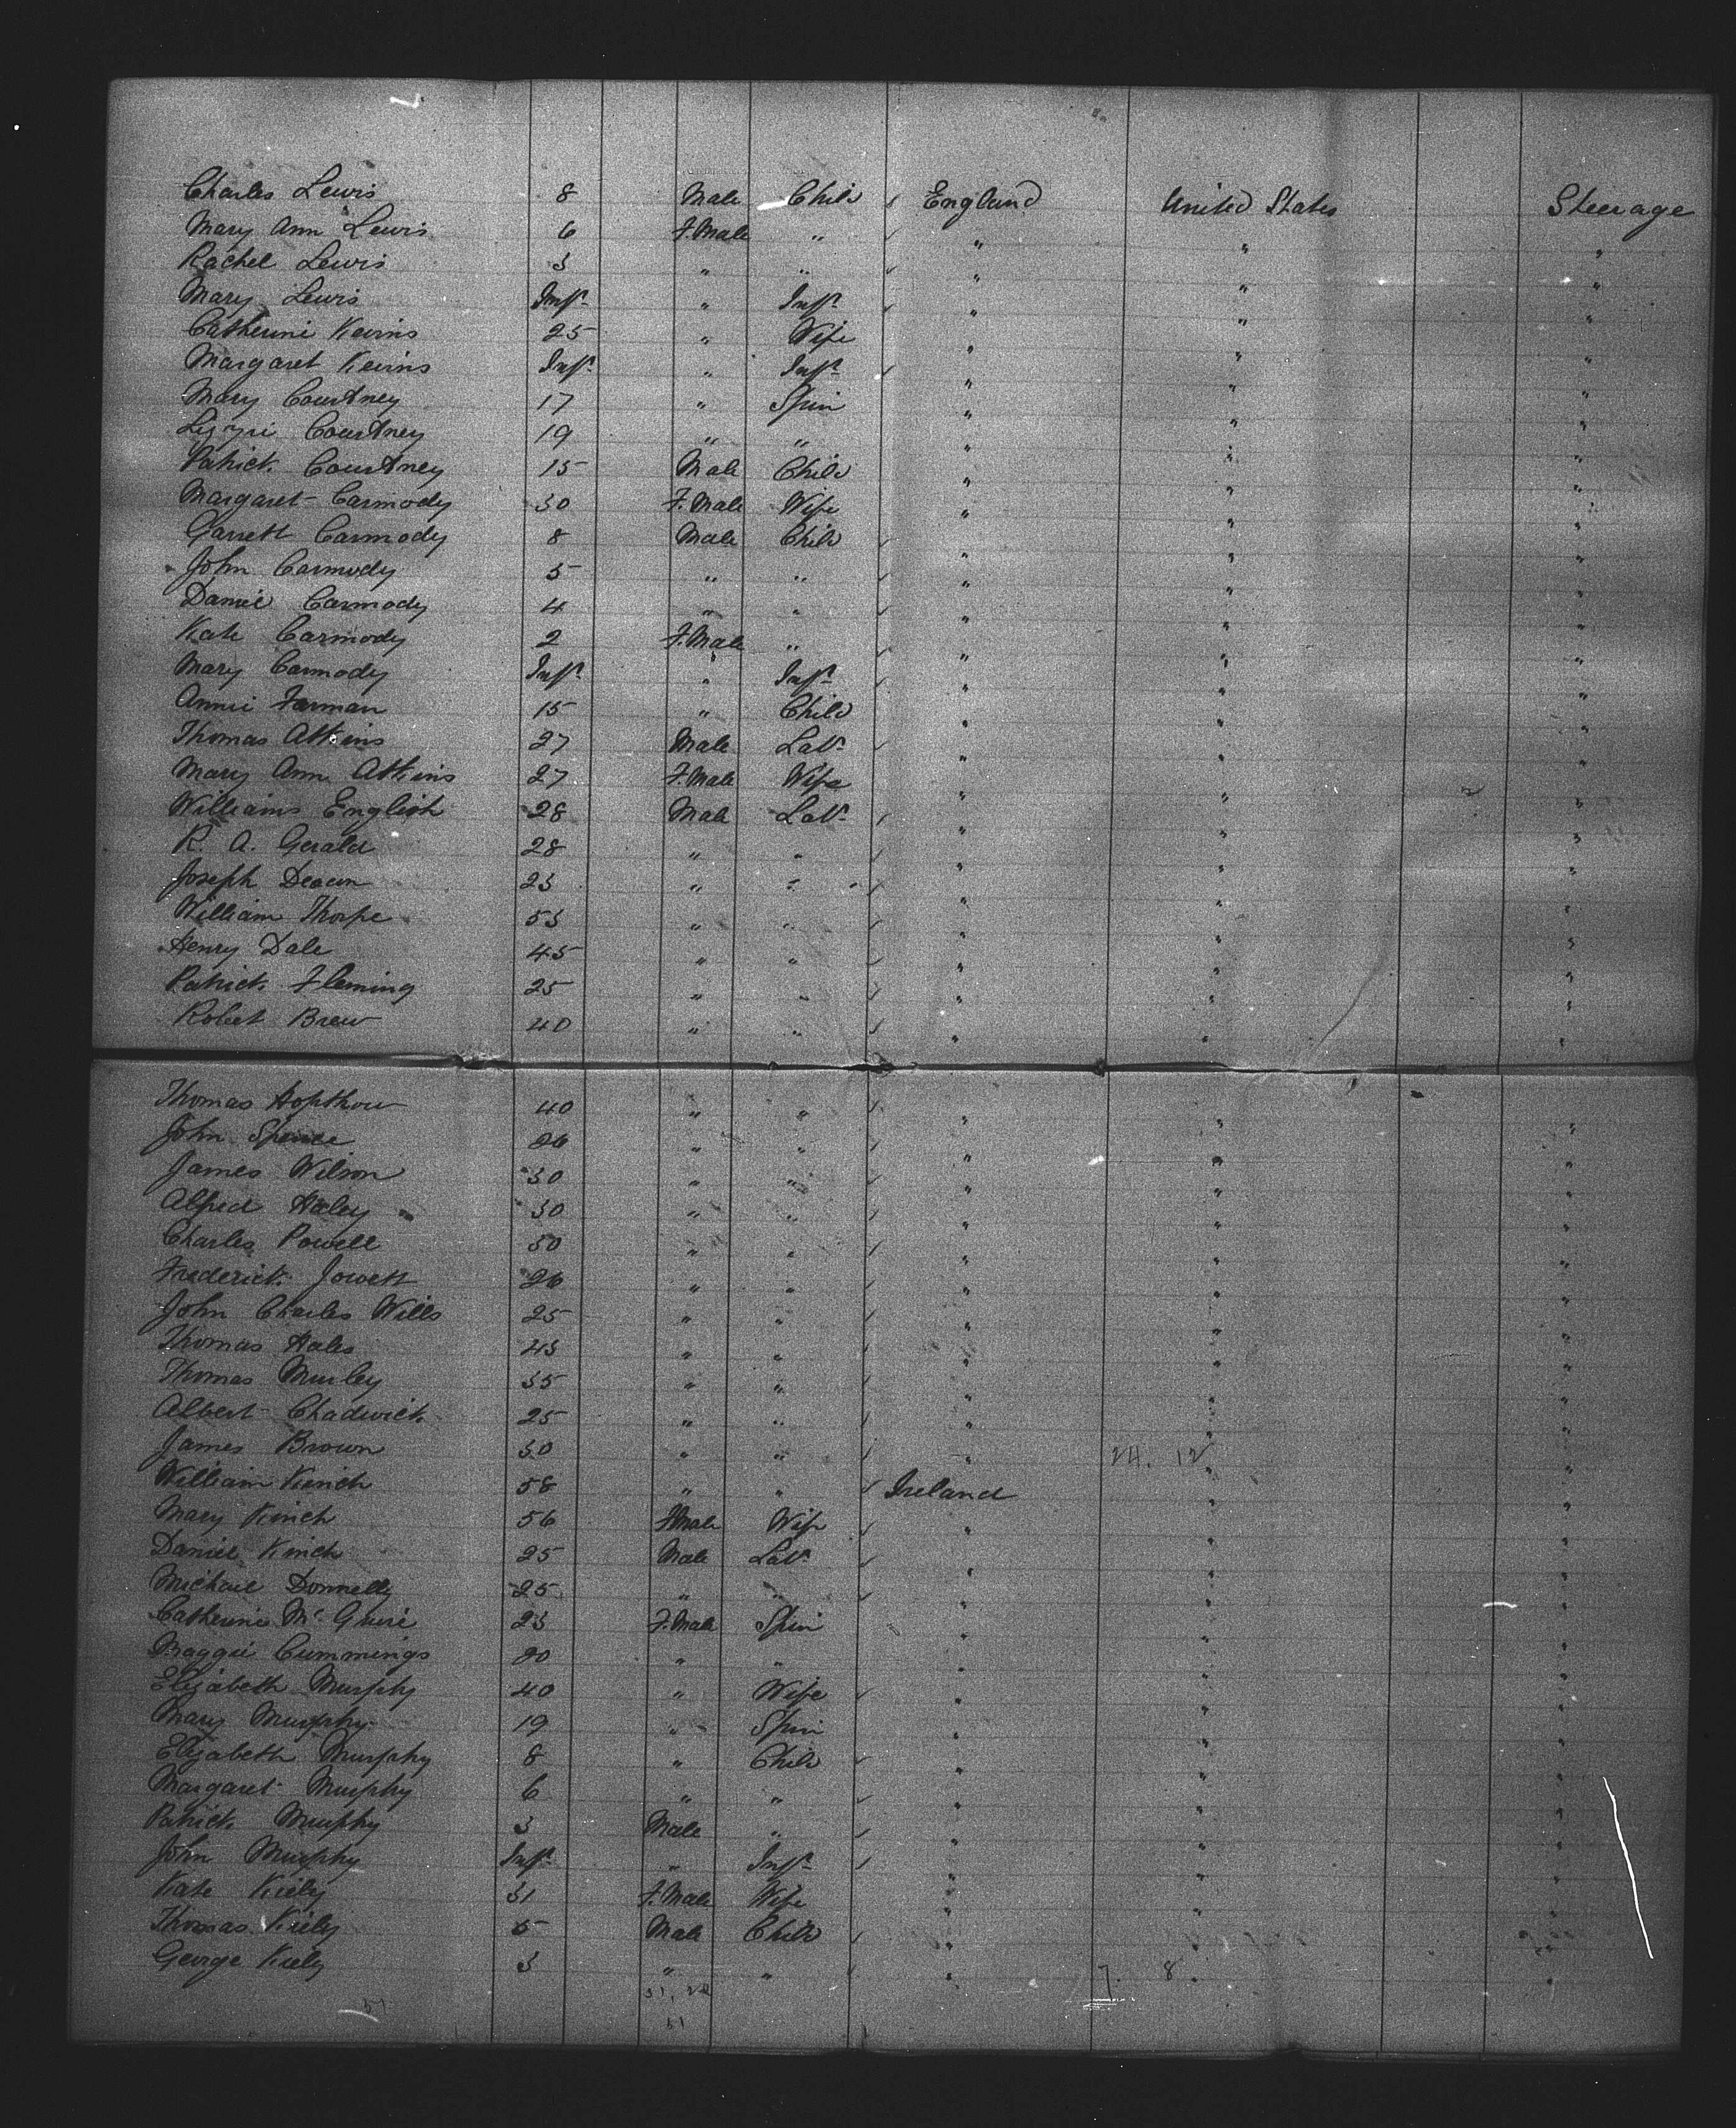 Charles Lewis 8 Male Child England United States Steerage
Mary Ann Lewis 6 F.Male " " " "
Rachel Lewis 3 " " " " "
Mary Lewis Inft " Inft " " "
Catherine Kevins 25 " Wife " " "
Margaret Kevins Inft " Inft " " "
Mary Courtney 17 " Spin " " "
Lizzie Courtney 19 " " " " "
Patrick Courtney 15 Male Child " " "
Margaret Carmody 30 F.Male Wife " " "
Garrett Carmody 8 Male Child " " "
John Carmody 5 " " " " "
Daniel Carmody 4 " " " " "
Kate Carmody 2 F.Male " " " "
Mary Carmody Inft " Inft " " "
Annie Farman 15 " Child " " "
Thomas Atkins 27 Male Labr " " "
Mary Ann Atkins 27 F.Male Wife " " "
William English 28 Male Labr " " "
R. A. Gerald 28 " " " " "
Joseph Deacon 23 " " " " "
William Thorpe 53 " " " " "
Henry Dale 45 " " " " "
Patrick Fleming 25 " " " " "
Robert Brew 40 " " " " "
Thomas Hopthow 40 " " " " "
John Spence 26 " " " " "
James Wilson 30 " " " " "
Alfred Haley 30 " " " " "
Charles Powell 50 " " " " "
Frederick Jowett 26 " " " " "
John Charles Wills 25 " " " " "
Thomas Hales 43 " " " " "
Thomas Murley 35 " " " " "
Albert Chadwick 25 " " " " "
James Brown 30 " " " 24. 12 " "
William Kinch 58 " " Ireland " "
Mary Kinch 56 F.Male Wife " " "
Daniel Kinch 25 Male Labr " " "
Michael Donnelly 25 " " " " "
Catherine McGuire 23 F.Male Spin " " "
Maggie Cummings 20 " " " " "
Elizabeth Murphy 40 " Wife " " "
Mary Murphy 19 " Spin " " "
Elizabeth Murphy 8 " Child " " "
Margaret Murphy 6 " " " " "
Patrick Murphy 3 Male " " " "
John Murphy Inft " Inft " " "
Kate Kiely 31 F.Male Wife " " "
Thomas Kiely 5 Male Child " " "
George Kiely 3 " " " 7. 8. "
51